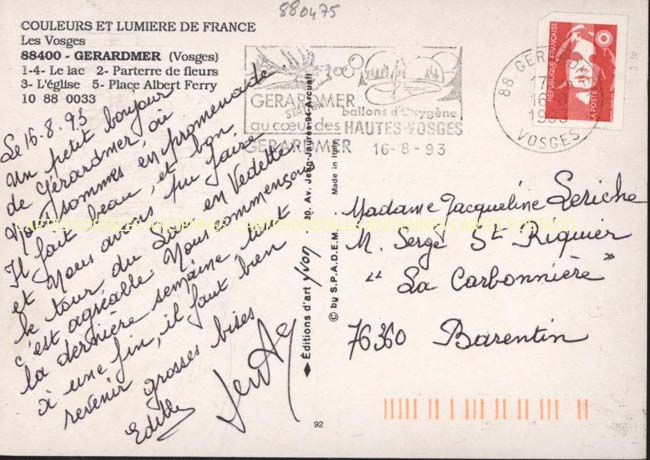 880475
COULEURS ET LUMIERE DE FRANCE
Les Vosges
88400 - GERARDMER (Vosges)
1-4- Le lac 2- Parterre de fleurs
3- L'église 5- Place Albert Ferry
10 88 0033
Le 16.8.93
Un petit bonjour
de Gérardmer, où
nous sommes en promenade
Il fait beau, et bon,
et nous avons pu faire
le tour du Lac en Vedette
c'est agréable. Nous commençons
la dernière semaine, tout
à une fin, il faut bien
revenir grosses bises
Edith
GERARDMER
ballons d'Oxygène
au cœur des HAUTES-VOSGES
GERARDMER 16-8-93
88 GERARDMER
17
16
1993
VOSGES
REPUBLIQUE FRANÇAISE
LA POSTE
Editions d'art yvon, 39, Av. Jean-Jaurès-94-Arcueil
© by S.P.A.D.E.M. Made in Italy
Madame Jacqueline Leriche
M. Serge St Riquier
"La Carbonnière"
76360 Barentin
92